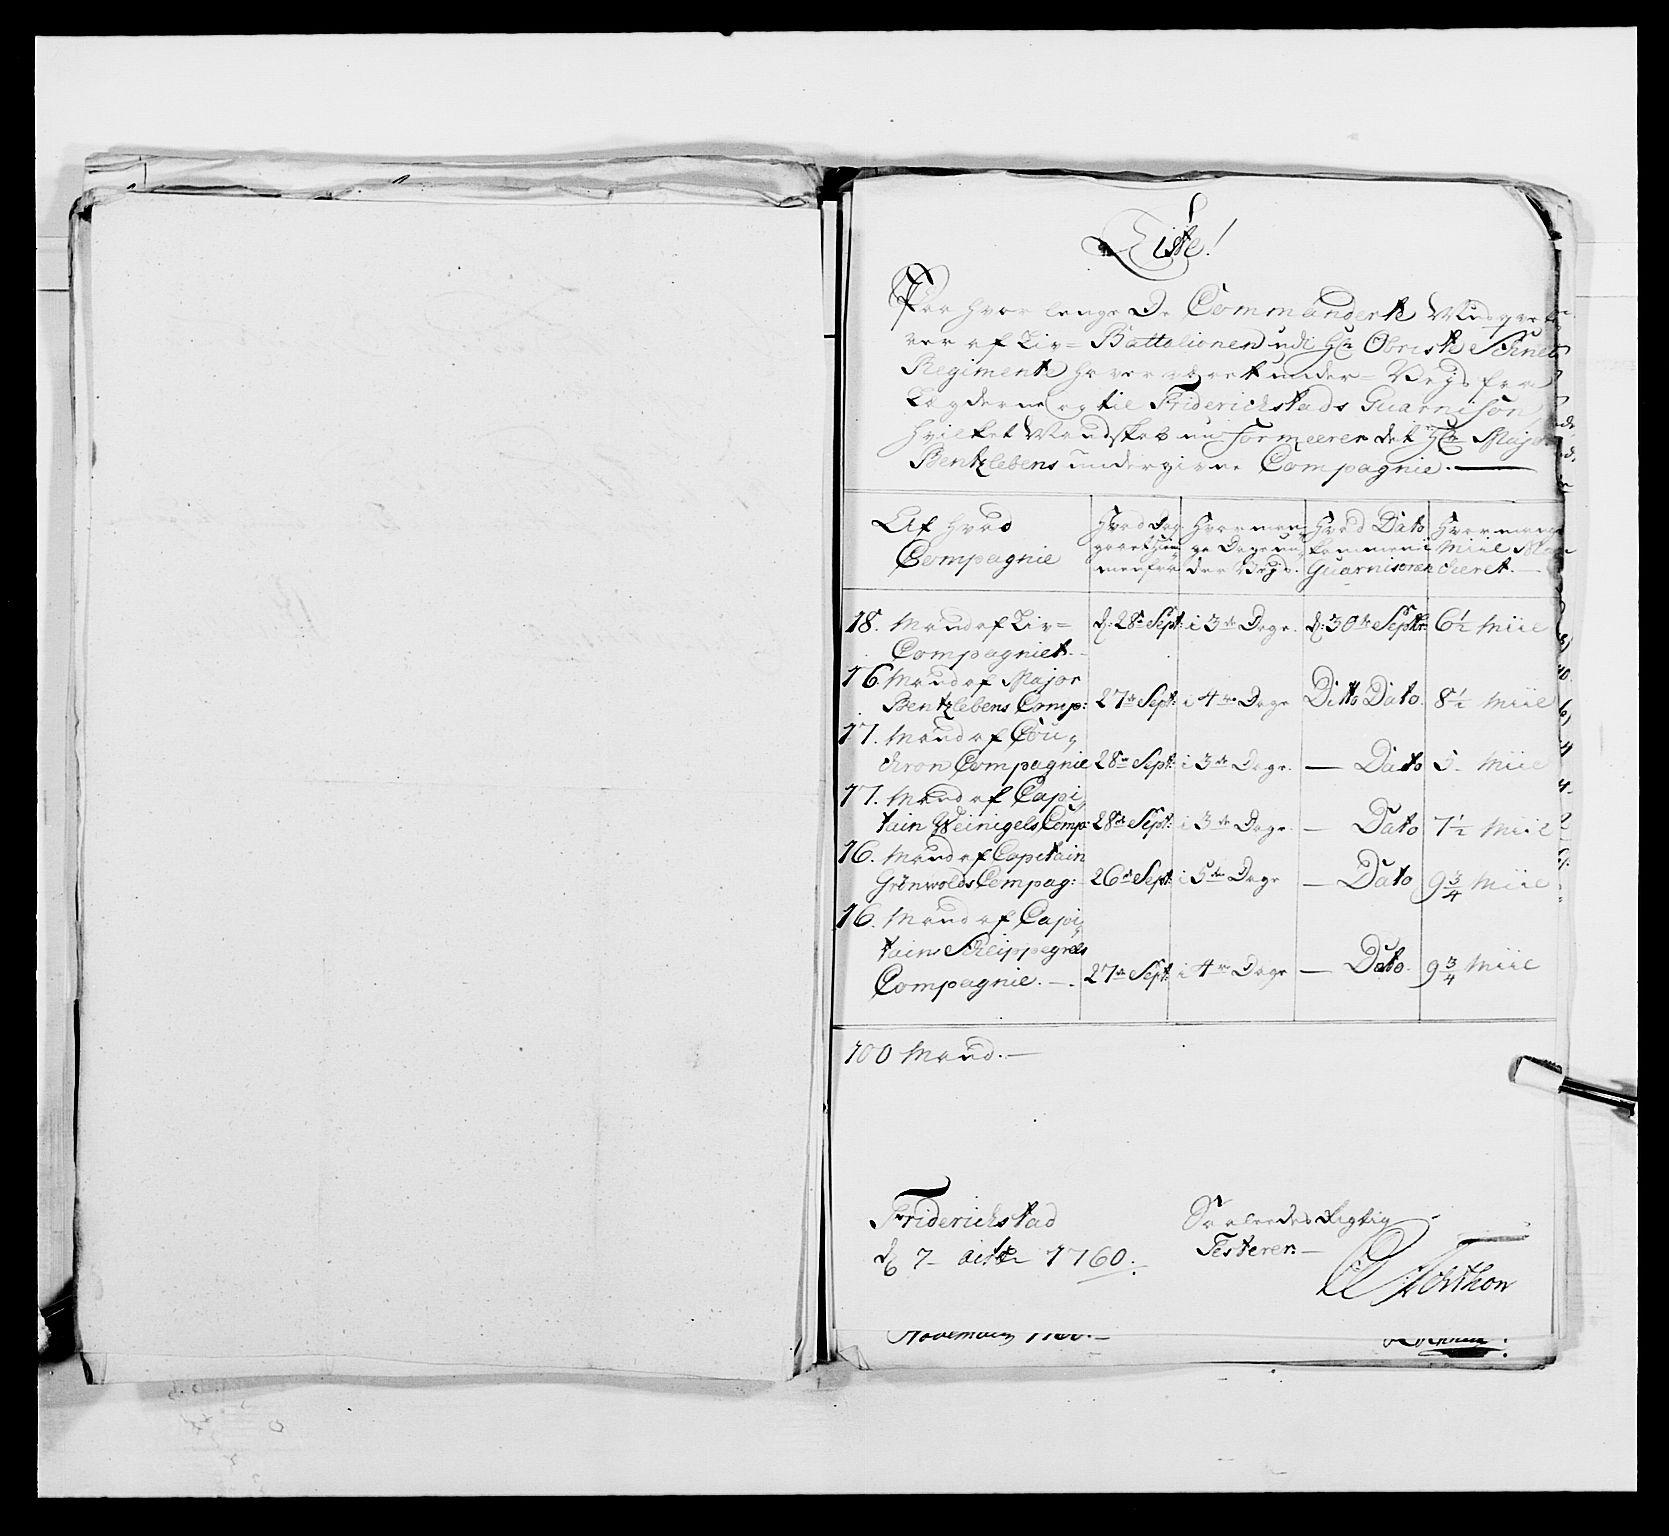 Liste!
Paa hvor lenge De Commanderte Mudqve-
rer af Liv= Battalionen udi Hr: Obrist Schnel
Regimente haver været under= Vejs fra
Lægderne og til Friderichstads Guarnison
hvilket Mandskab nu formeerer det Hr: Major
Bentzlebens undergivne Compagnie.
Af hvad
Compagnie
Hvad Dag
gaaet Hiem
men fra
Hvor man-
ge Dage un-
der Vejs.
Hvad Dato
kommen i
Guarnisonen
Hvor mange
Miil Mar-
cheret.
18. Mand af Liv=
Compagniet.
d: 28de Sept: i 3de Dage. d: 30te Septbr: 6½ Miil
16. Mand af Major
Bentzlebens Comp: 27de Sept: i 4de Dage Ditto Dato. 8½ Miil
17. Mand af Cou-
cheron Compagnie 28de Sept: i 3de Dage. — Dato 5- Miil
17. Mand af Capi-
tain Weinigels Comp: 28de Sept: i 3de Dage. — Dato 7½ Miil
16. Mand af Capitain
Grønwolds Compag: 26de Sept: i 5te Dage — Dato 9¾ Miil
16. Mand af Capi-
tain Schlippegrels
Compagnie. — 27de Sept: i 4de Dage — Dato. 9¾ Miil
100 Mand.—
Friderichstad
d 7- octbr 1760.
Saaledes Rigtig
Testerer.—
November 1760.—